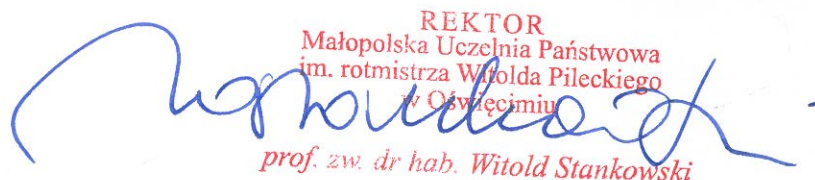 REKTOR
Małopolska Uczelnia Państwowa
im. rotmistrza Witolda Pileckiego
w Oświęcimiu
prof. zw. dr hab. Witold Stankowski